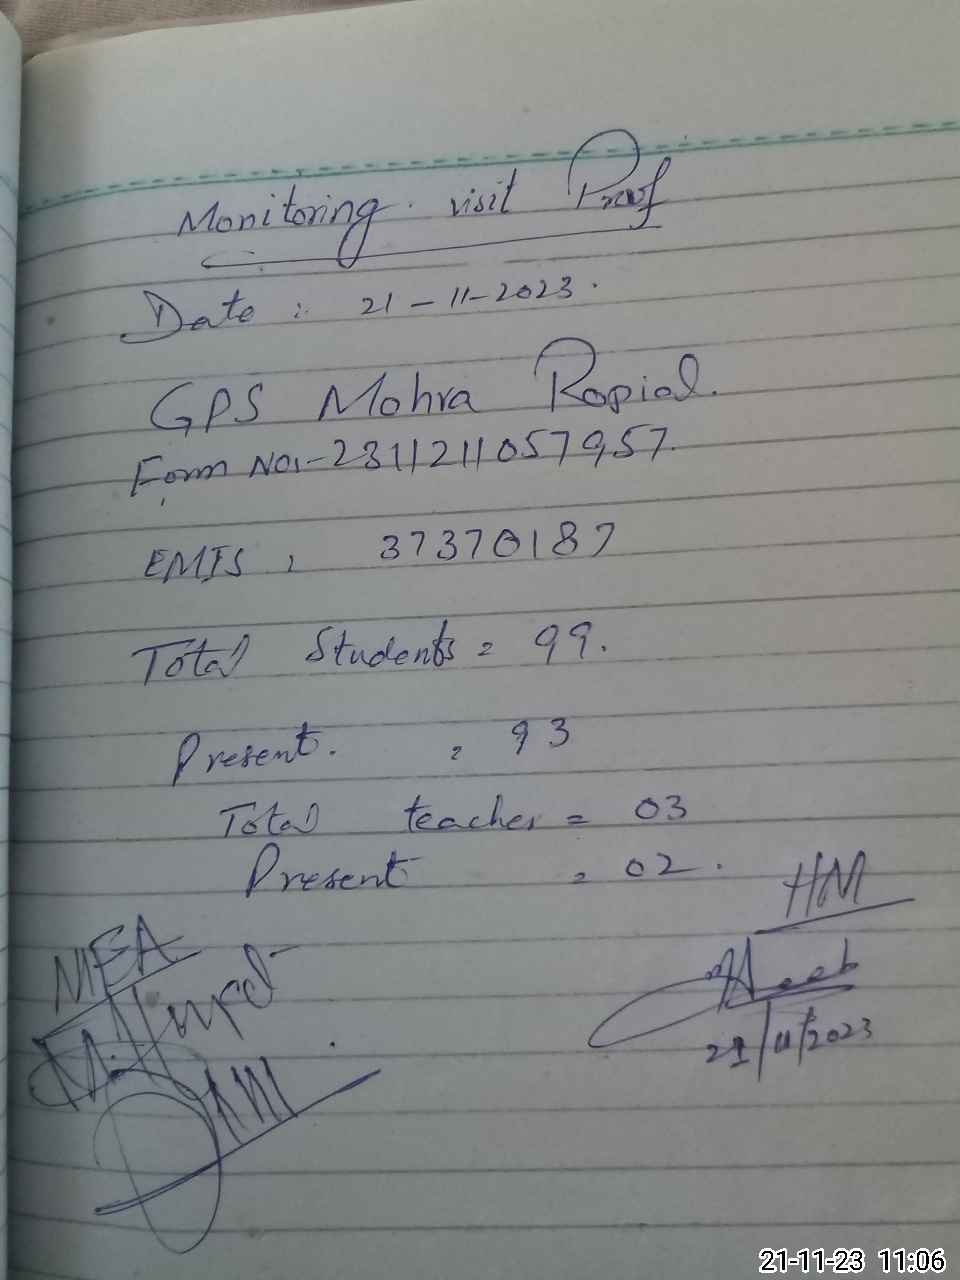 Monitoring visit Proof
Date : 21-11-2023.
GPS Mohra Ropial.
Form No:-2311211057957.
EMIS : 37370187
Total Students = 99.
Present. = 93
Total teacher = 03
Present = 02.
HM
MEA
21/11/2023
21-11-23 11:06